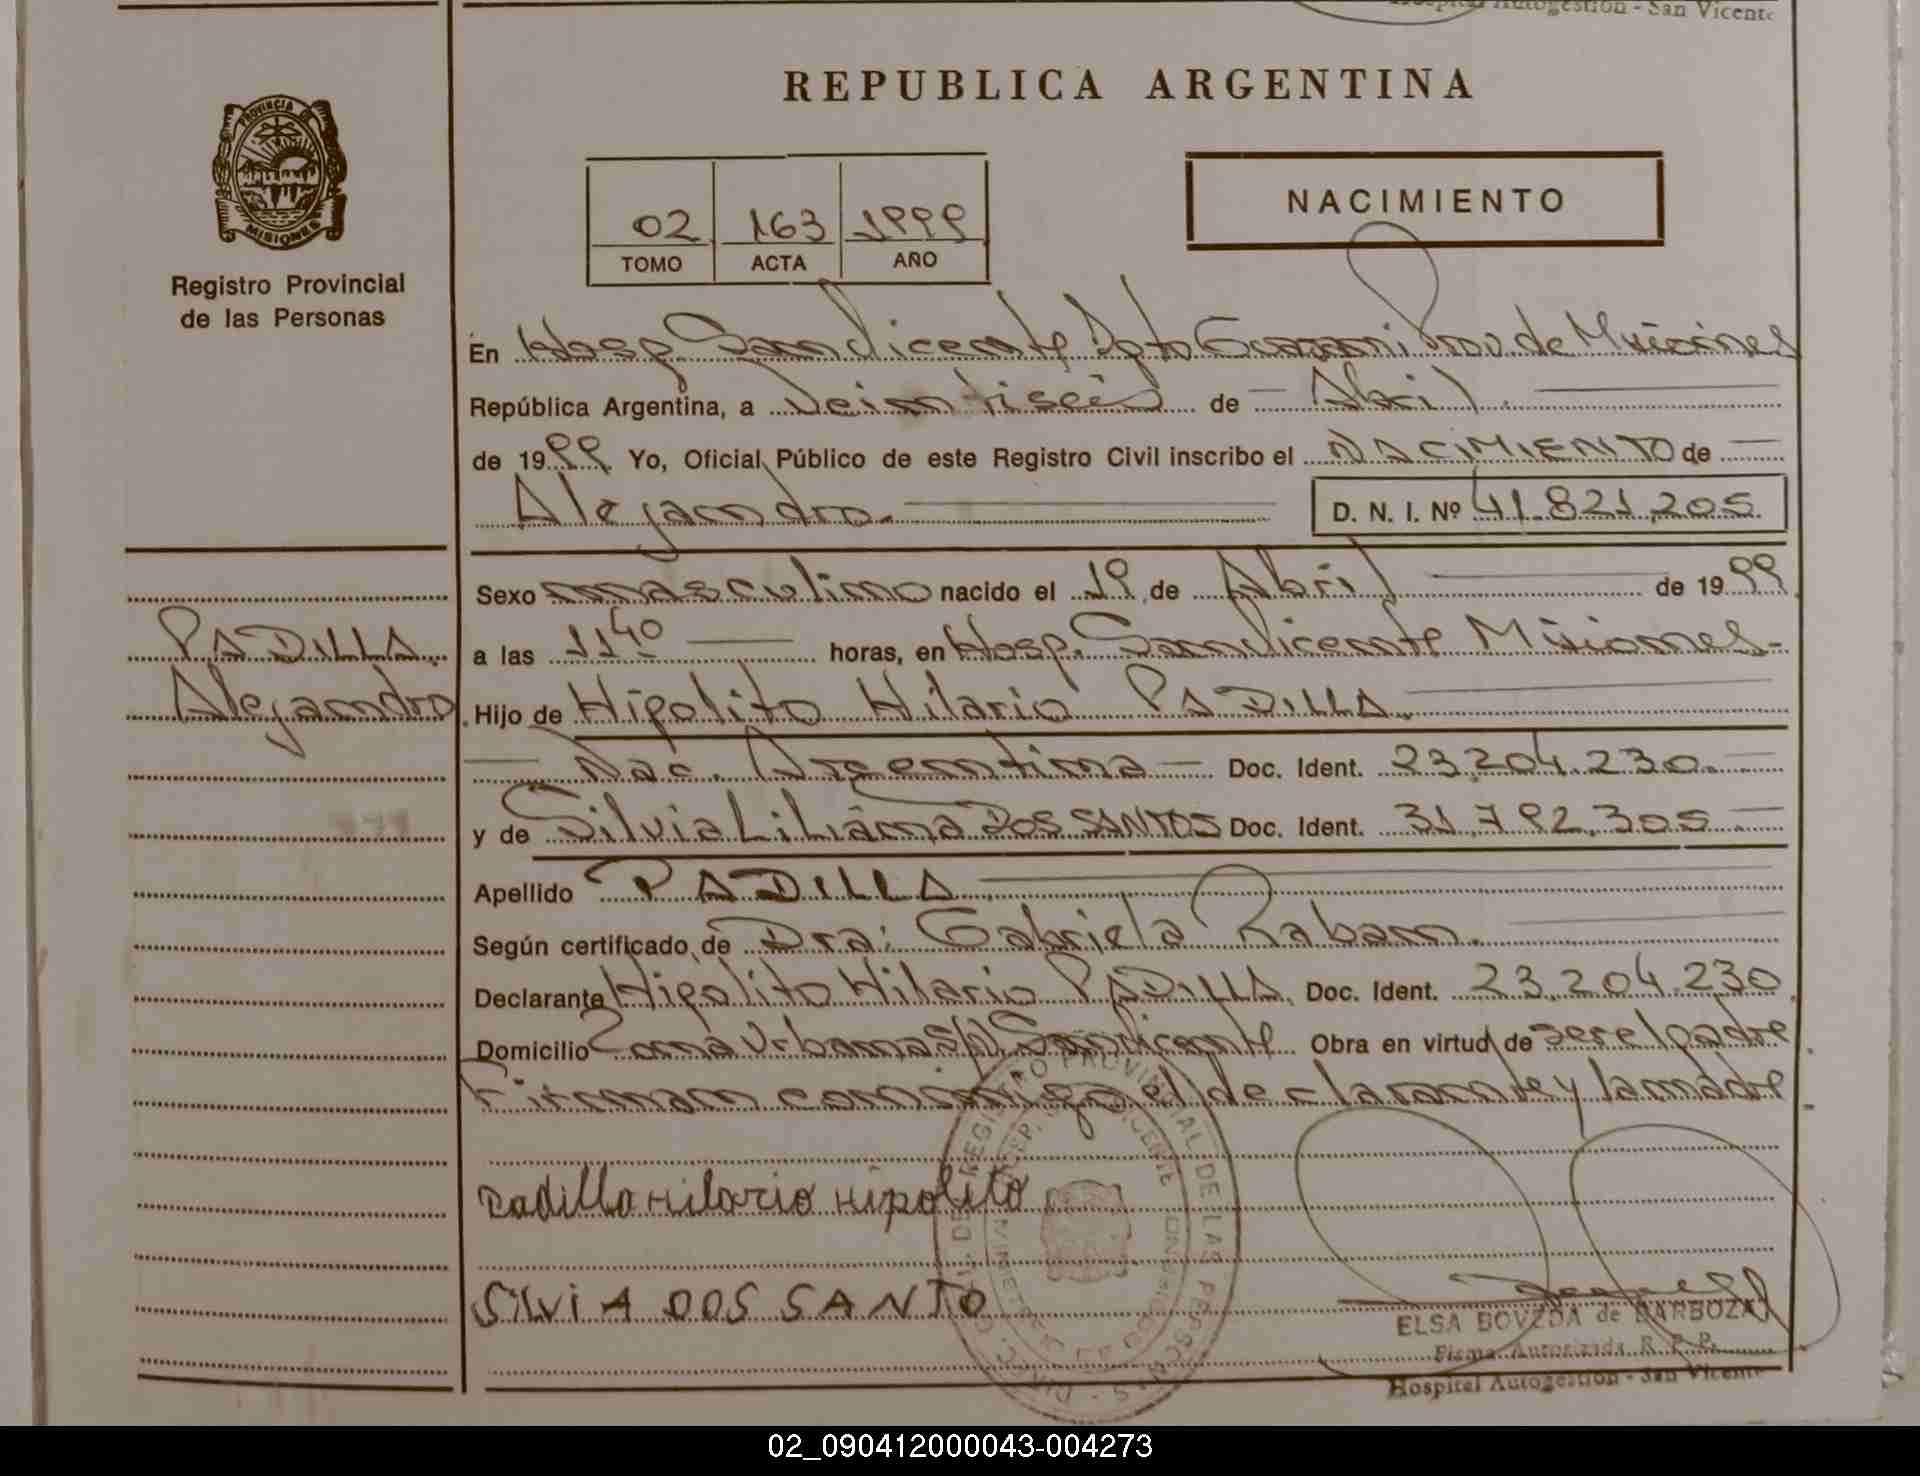 Hospital Autogestión - San Vicente
REPUBLICA ARGENTINA
PROVINCIA DE
MISIONES
Registro Provincial
de las Personas
02 163 1999
TOMO ACTA AÑO
NACIMIENTO
En Hosp. San Vicente Dpto Guarani Prov. de Misiones
República Argentina, a Veintiseis de Abril
de 1999 Yo, Oficial Público de este Registro Civil inscribo el NACIMIENTO de
Alejandro. D. N. I. Nº 41.821.205
Sexo masculino nacido el 19 de Abril de 1999
PADILLA.
Alejandro
a las 11 40 horas, en Hosp. San Vicente Misiones.-
Hijo de Hipolito Hilario PADILLA.
Nac. Argentina Doc. Ident. 23.204.230.
y de Silvia Liliana DOS SANTOS Doc. Ident. 31.792.305
Apellido PADILLA
Según certificado de Dra: Gabriela Raban.
Declarante Hipolito Hilario PADILLA. Doc. Ident. 23.204.230.
Domicilio Zona Urbana S/N. San Vicente Obra en virtud de ser el padre.
Firman conmigo el declarante y la madre.-
Padilla Hilario Hipolito
SILVIA DOS SANTO
REGISTRO PROVINCIAL DE LAS PERSONAS
ELSA BOVEDA de BARBOZA
Firma Autorizada R. P. P.
Hospital Autogestión - San Vicente
02_090412000043-004273